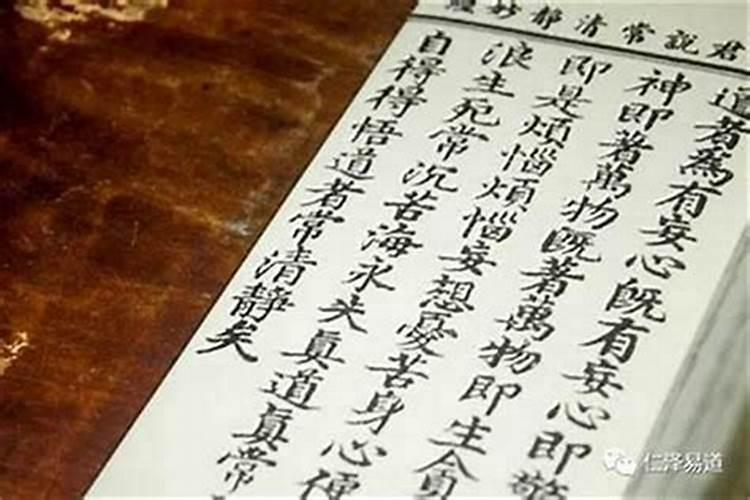 君說常清靜妙
道者為有妄心既有妄心即驚
神即著萬物既著萬物即生貪
即是煩惱煩惱妄想憂苦身心便
浪生死常沉苦海永失真道真常
自得得悟道者常清靜矣
仁泽易道